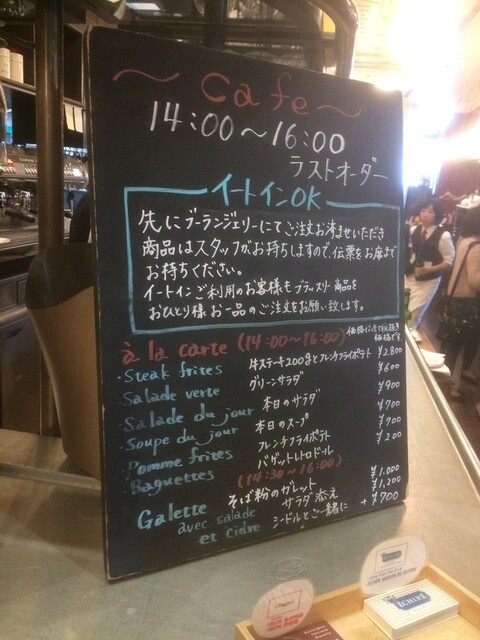 ~ Cafe ~
14:00~16:00
ラストオーダー
イートインOK
先にブーランジェリーにてご注文お済ませいただき
商品はスタッフがお持ちしますので、伝票をお席まで
お持ちください。
イートインご利用のお客様もブラッスリー商品を
おひとり様お一品のご注文をお願い致します。
à la carte (14:00~16:00)
価格は全て税抜き
価格です。
・Steak frites 牛ステーキ200gとフレンチフライポテト ¥2,800
Salade verte グリーンサラダ ¥600
・Salade du jour 本日のサラダ ¥900
・Soupe du jour 本日のスープ ¥700
・Pomme frites フレンチフライポテト ¥700
・Baguettes バゲットレトロドール ¥200
(14:30~16:00)
Galette そば粉のガレット ¥1,000
avec salade サラダ添え ¥1,200
et Cidre シードルとご一緒に +¥700
ÉCHIRÉ